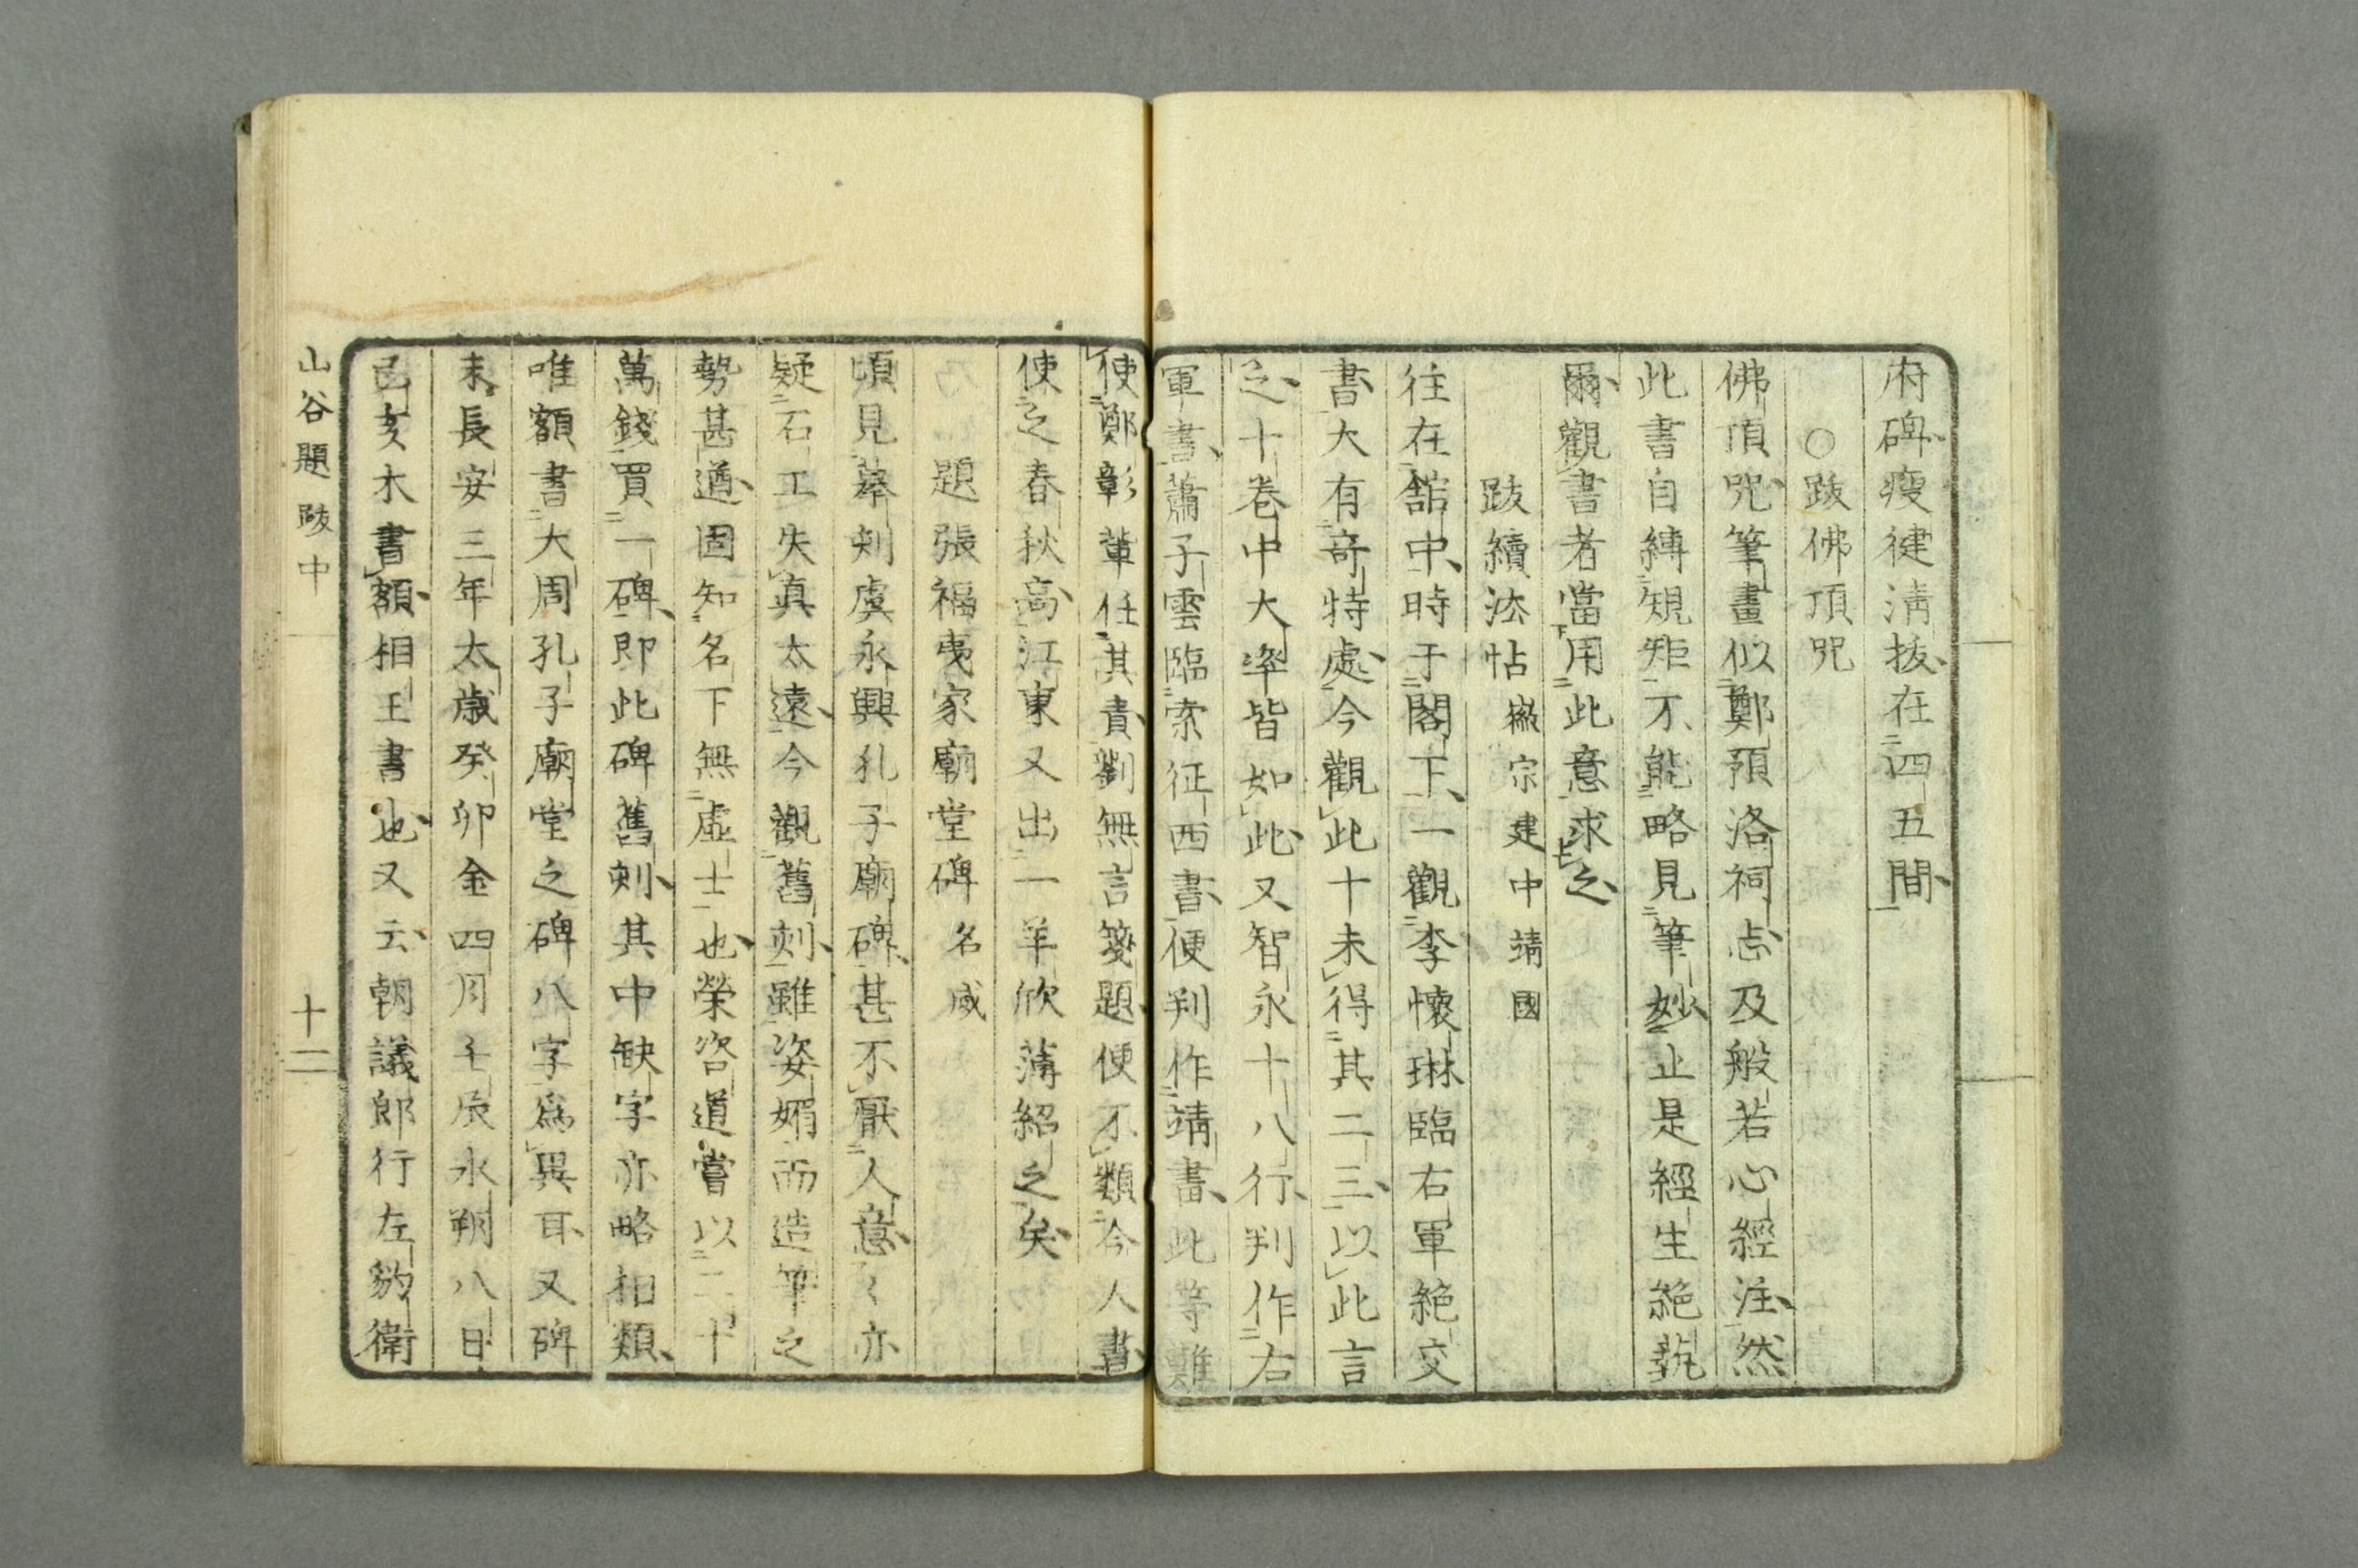 府碑瘦健淸拔在四五間
○跋佛頂咒
佛頂咒筆畫似鄭預洛祠志及般若心經注然
此書自縛規矩不能略見筆妙止是經生絶藝
爾觀書者當用此意求之
跋續法帖 徽宗建中靖國
往在舘中時于閣下一觀李懷琳臨右軍絶交
書大有奇特處今觀此十未得其二三以此言
之十卷中大率皆如此又智永十八行判作右
軍書蕭子雲臨索征西書便判作靖書此等雖
使鄭彰輩任其責劉無言箋題便不類今人書
使之春秋高江東又出一羊欣薄紹之矣
題張福夷家廟堂碑 名咸
頃見摹刻虞永興孔子廟碑甚不厭人意〻亦
疑石工失真太遠今觀舊刻雖姿媚而造筆之
勢甚遒固知名下無虛士也榮咨道嘗以二十
萬錢買一碑即此碑舊刻其中缺字亦略相類
唯額書大周孔子廟堂之碑八字爲異耳又碑
末長安三年太歳癸卯金四月壬辰水朔八日
己亥木書額相王書也又云朝議郎行左豹衛
山谷題跋中
十二